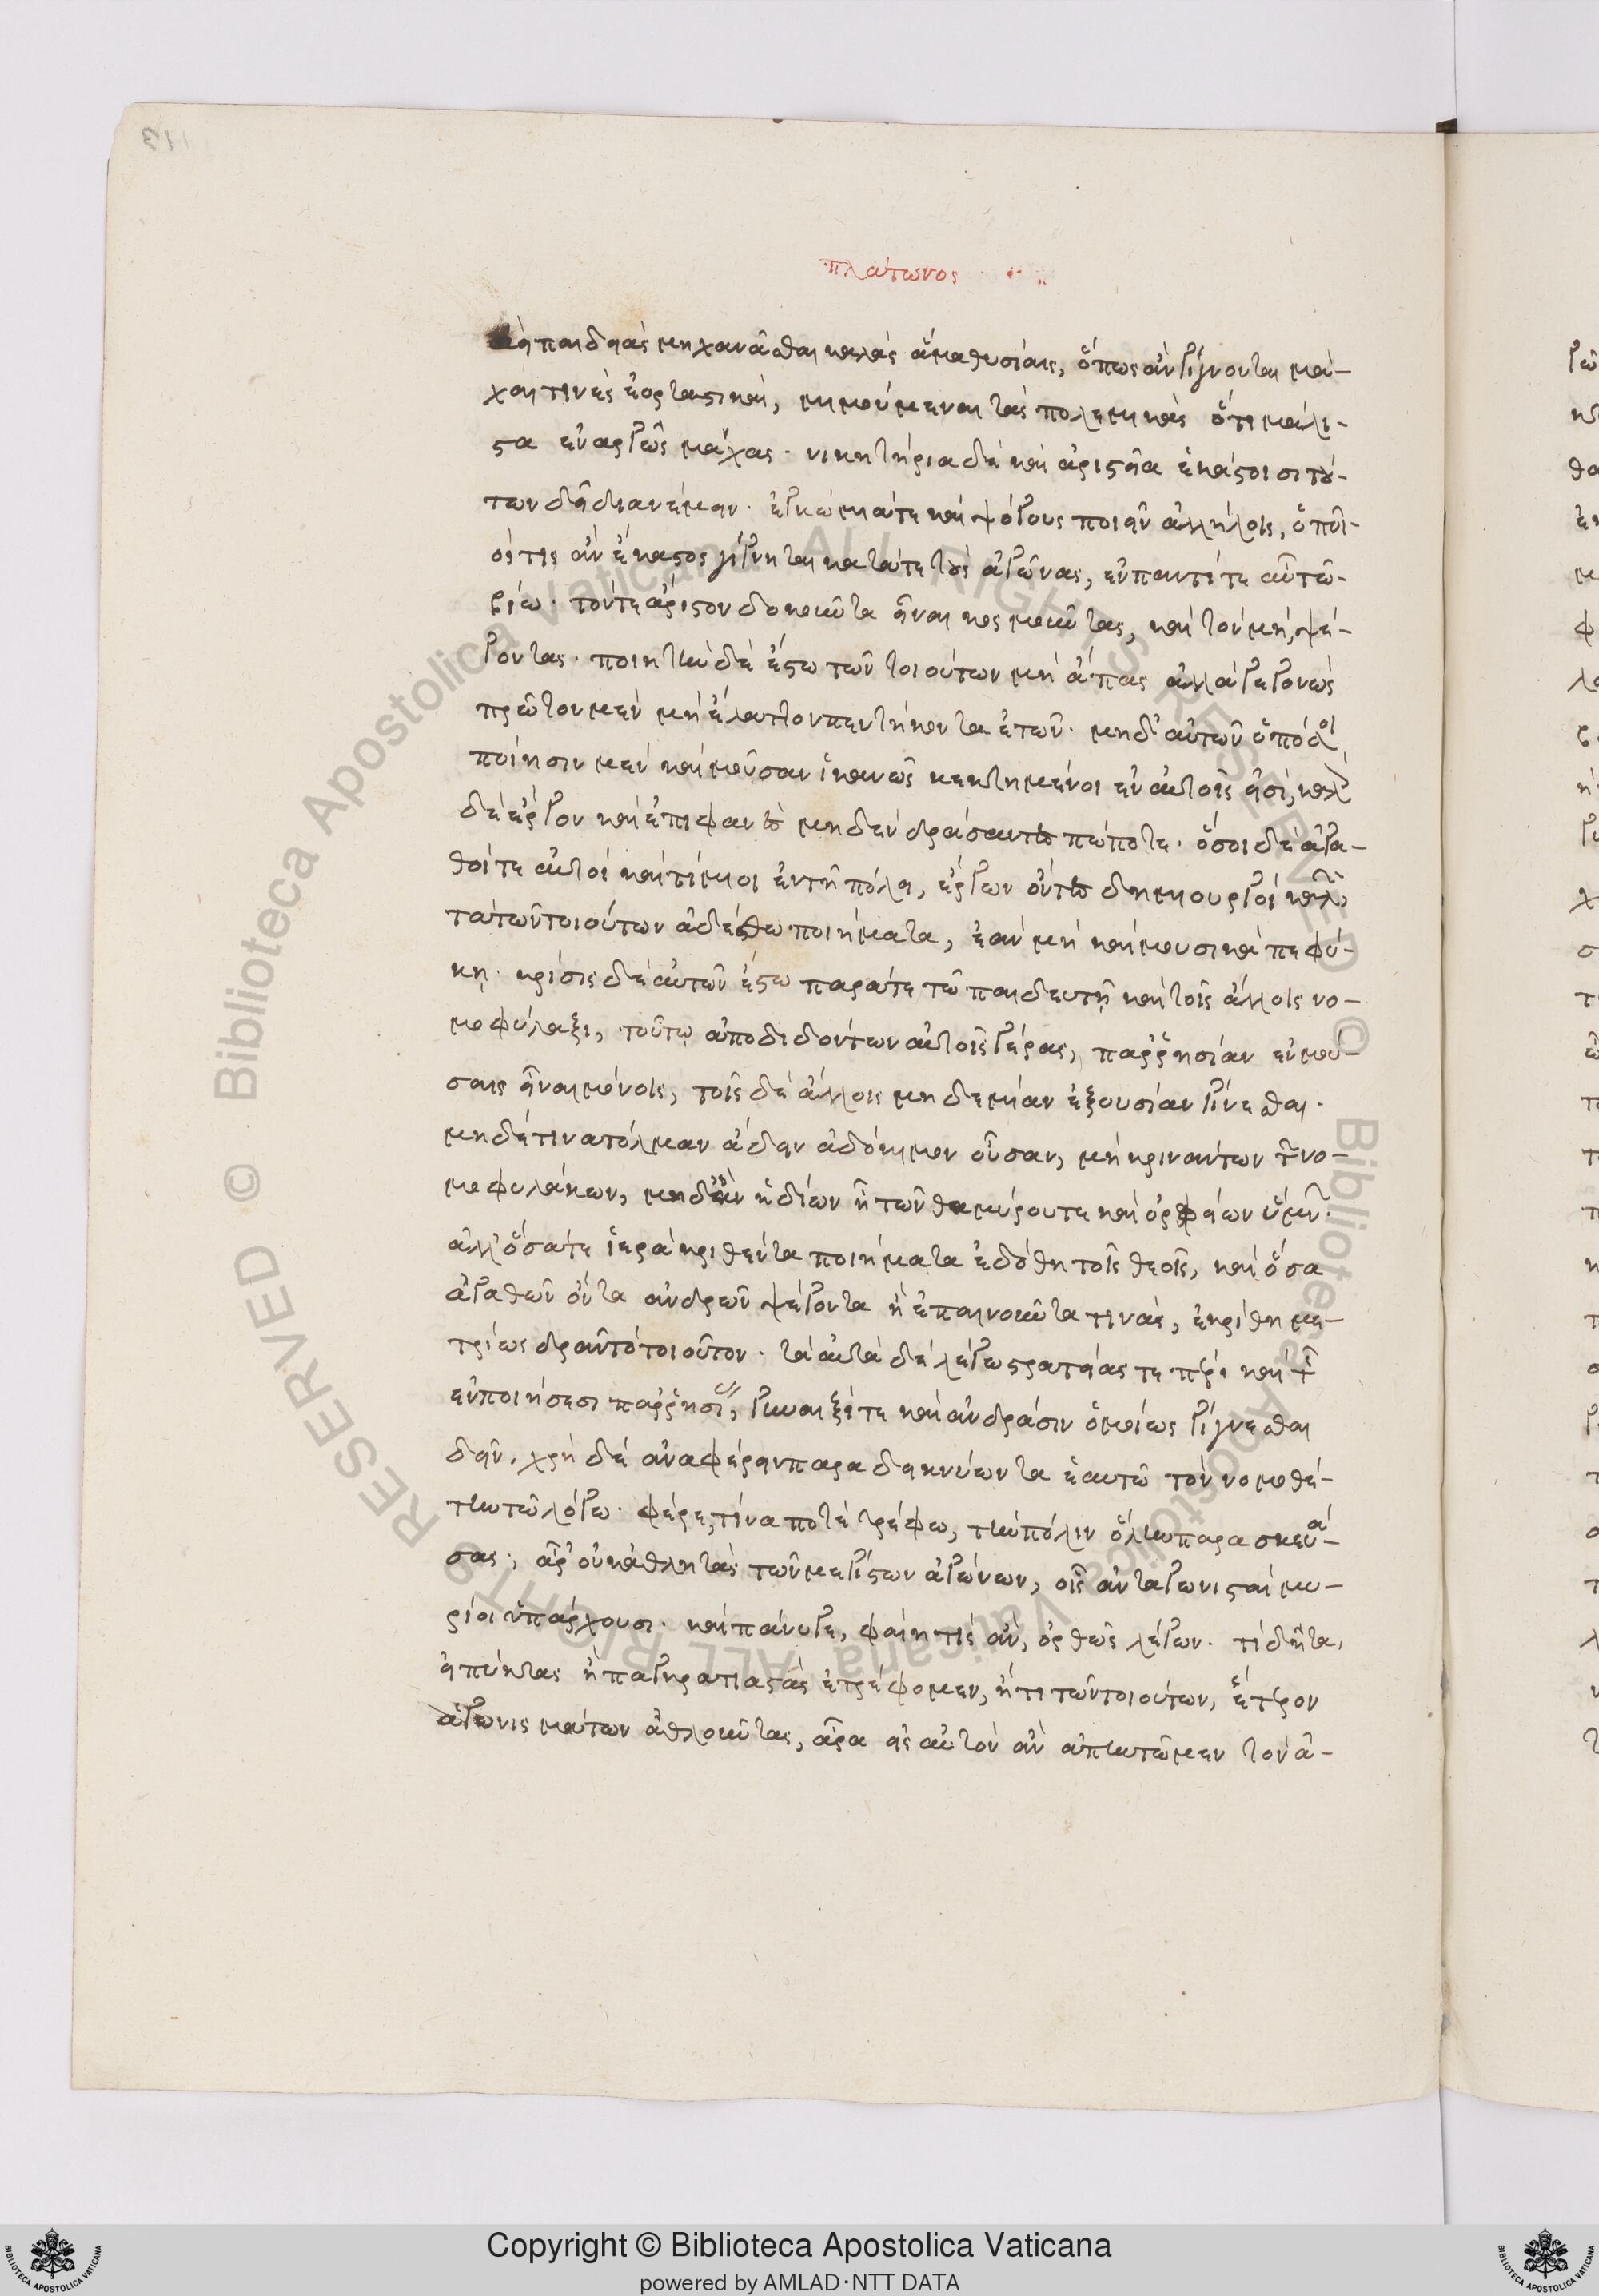 πλάτωνος
παιδειὰς μηχανᾶσθαι καλὰς ἅμα θυσίαις, ὅπως ἂν γίγνονται μά-
χαι τινὲς ἑορταστικαὶ, μιμούμεναι τὰς πολεμικὰς ὅτι μάλι-
στα ἐναργῶς μάχας. νικητήρια δὲ καὶ ἀριστεῖα ἑκάστοισι τού-
των δεῖ διανέμειν. ἐγκώμιά τε καὶ ψόγους ποιεῖν ἀλλήλοις, ὁποῖ-
ός τις ἂν ἕκαστος γίγνηται κατά τε τοὺς ἀγῶνας, ἐν παντί τε αὖ τῶ
βίω. τόν τε ἄριστον δοκοῦντα εἶναι κοσμοῦντας, καὶ τὸν μὴ, ψέ-
γοντας. ποιητὴς δὲ ἔστω τῶν τοιούτων μὴ ἅπας ἀλλὰ γεγονὼς
πρῶτον μὲν μὴ ἔλαττον πεντήκοντα ἐτῶν. μηδ' αὐτῶν ὁπόσοι
ποίησιν μὲν καὶ μοῦσαν ἱκανῶς κεκτημένοι ἐν αὑτοῖς εἰσὶ, καλὸν
δὲ ἔργον καὶ ἐπιφανὲς μηδὲν δράσαντες πώποτε. ὅσοι δὲ ἀγα-
θοί τε αὐτοὶ καὶ τίμιοι ἐν τῆ πόλει, ἔργων ὄντες δημιουργοὶ καλῶν
τὰ τῶν τοιούτων ἀδέσθω ποιήματα, ἐὰν μὴ καὶ μουσικὰ πεφύ-
κη. κρίσις δὲ αὐτῶν ἔστω παρά τε τῶ παιδευτῆ καὶ τοῖς ἄλλοις νο-
μοφύλαξι, τοῦτω ἀποδιδόντων αὐτοῖς γέρας, παῤῥησίαν ἐν μού-
σαις εἶναι μόνοις, τοῖς δὲ ἄλλοις μηδεμίαν ἐξουσίαν γίνεσθαι.
μηδέ τινα τόλμαν ἄδειν ἀδόκιμον οὖσαν, μὴ κρινάντων τῶν νο-
μοφυλάκων, μηδ' ἂν ἡδίων ἢ τῶν θαμύρου τε καὶ ὀρφείων ὕμνων.
ἀλλ' ὅσα τε ἱερὰ κριθέντα ποιήματα ἐδόθη τοῖς θεοῖς, καὶ ὅσα
ἀγαθῶν ὄντα ἀνδρῶν ψέγοντα ἢ ἐπαινοῦντα τινὰς, ἐκρίθη με-
τρίως δρᾶν τὸ τοιοῦτον. τὰ αὐτὰ δὲ λέγω στρατείας τε πέρι καὶ τῆς
ἐν ποιήσεσι παῤῥησίας, γυναιξί τε καὶ ἀνδράσιν ὁμοίως γίγνεσθαι
δεῖν. χρὴ δὲ ἀναφέρειν παραδεικνύοντα ἑαυτῶ τὸν νομοθέ-
την τῶ λόγω. φέρε, τίνα ποτὲ τρέφω, τὴν πόλιν ὅλην παρασκευά-
σας; ἆρ' οὐκ ἀθλητὰς τῶν μεγίστων ἀγώνων, οἷς ἀνταγωνισταὶ μυ-
ρίοι ὑπάρχουσι. καὶ πάνυ γε, φαίη τὶς ἂν, ὀρθῶς λέγων. τί δῆτα,
εἰ πύκτας ἢ παγκρατιαστὰς ἐτρέφομεν, ἤ τι τῶν τοιούτων, ἕτερον
ἀγωνισμάτων ἀθλοῦντας, ἆρα εἰς αὐτὸν ἂν ἀπηντῶμεν τὸν ἀ-
Copyright © Biblioteca Apostolica Vaticana
powered by AMLAD·NTT DATA